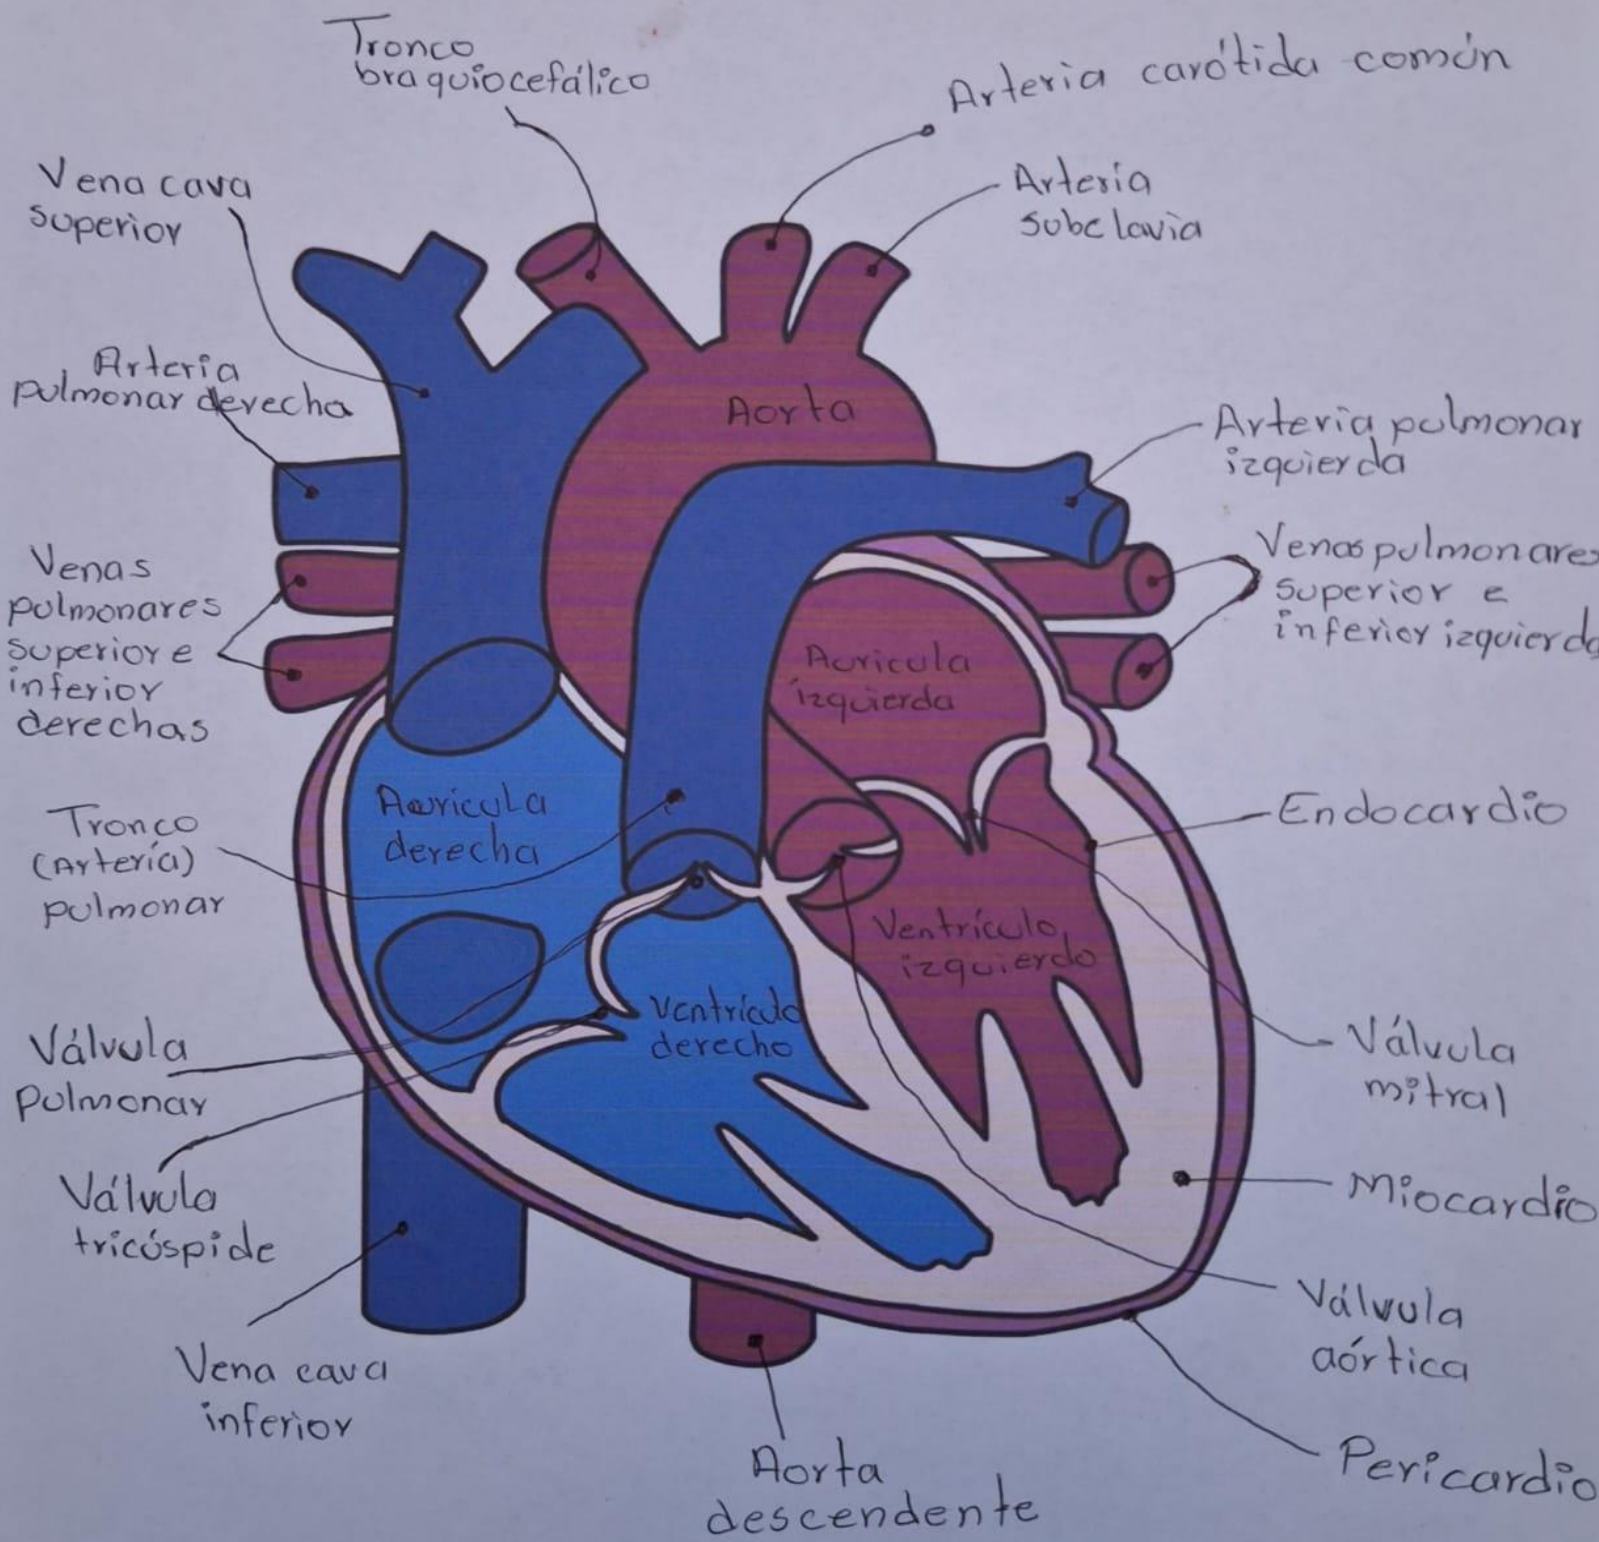 Tronco
braquiocefálico
Arteria carótida común
Vena cava
superior
Arteria
subclavia
Arteria
pulmonar derecha
Aorta
Arteria pulmonar
izquierda
Venas
pulmonares
superior e
inferior
derechas
Venas pulmonares
superior e
inferior izquierda
Auricula
izquierda
Auricula
derecha
Tronco
(Arteria)
pulmonar
Endocardio
Ventrículo
izquierdo
Ventrículo
derecho
Válvula
Pulmonar
Válvula
mitral
Válvula
tricúspide
Miocardio
Válvula
aórtica
Vena cava
inferior
Aorta
descendente
Pericardio